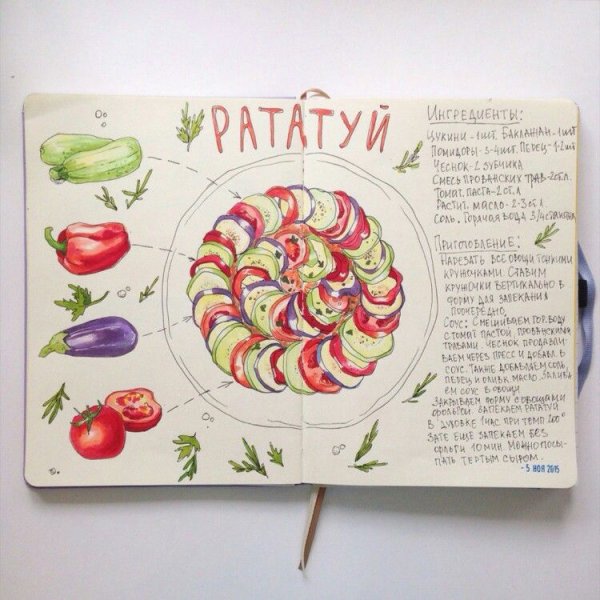 РАТАТУЙ
Ингредиенты:
Цукини-1шт. Баклажан-1шт
Помидоры-3-4шт. Перец-1-2шт
Чеснок-2 зубчика
Смесь прованских трав-2ст.л.
Томат. паста-2ст.л
Растит. масло-2-3ст.л.
Соль. Горячая вода 3/4 стакана
Приготовление:
Нарезать все овощи тонкими
кружочками. Ставим
кружочки вертикально в
форму для запекания
поочередно.
Соус: Смешиваем гор.воду
с томат пастой, прованскими
травами. Чеснок продавли-
ваем через пресс и добавл. в
соус. Также добавляем соль,
перец и оливк. масло. Залива
ем соус в овощи
Закрываем форму с овощами
фольгой. Запекаем рататуй
в духовке 1час при темп 200°
Зате еще запекаем без
фольги 10мин. Можно посы-
пать тертым сыром.
-5 НОЯ 2015